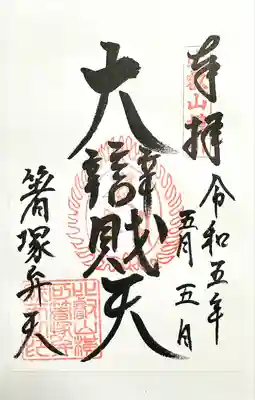 奉拝
令和五年
五月五日
大辯財天
箸塚弁天